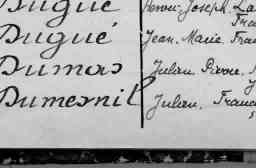 Dugué Pierre-Joseph. La
Fra
Dugué Jean. Marie. Fran
Dumas Julien. Pierre.
Dumesnil Julien. Franç